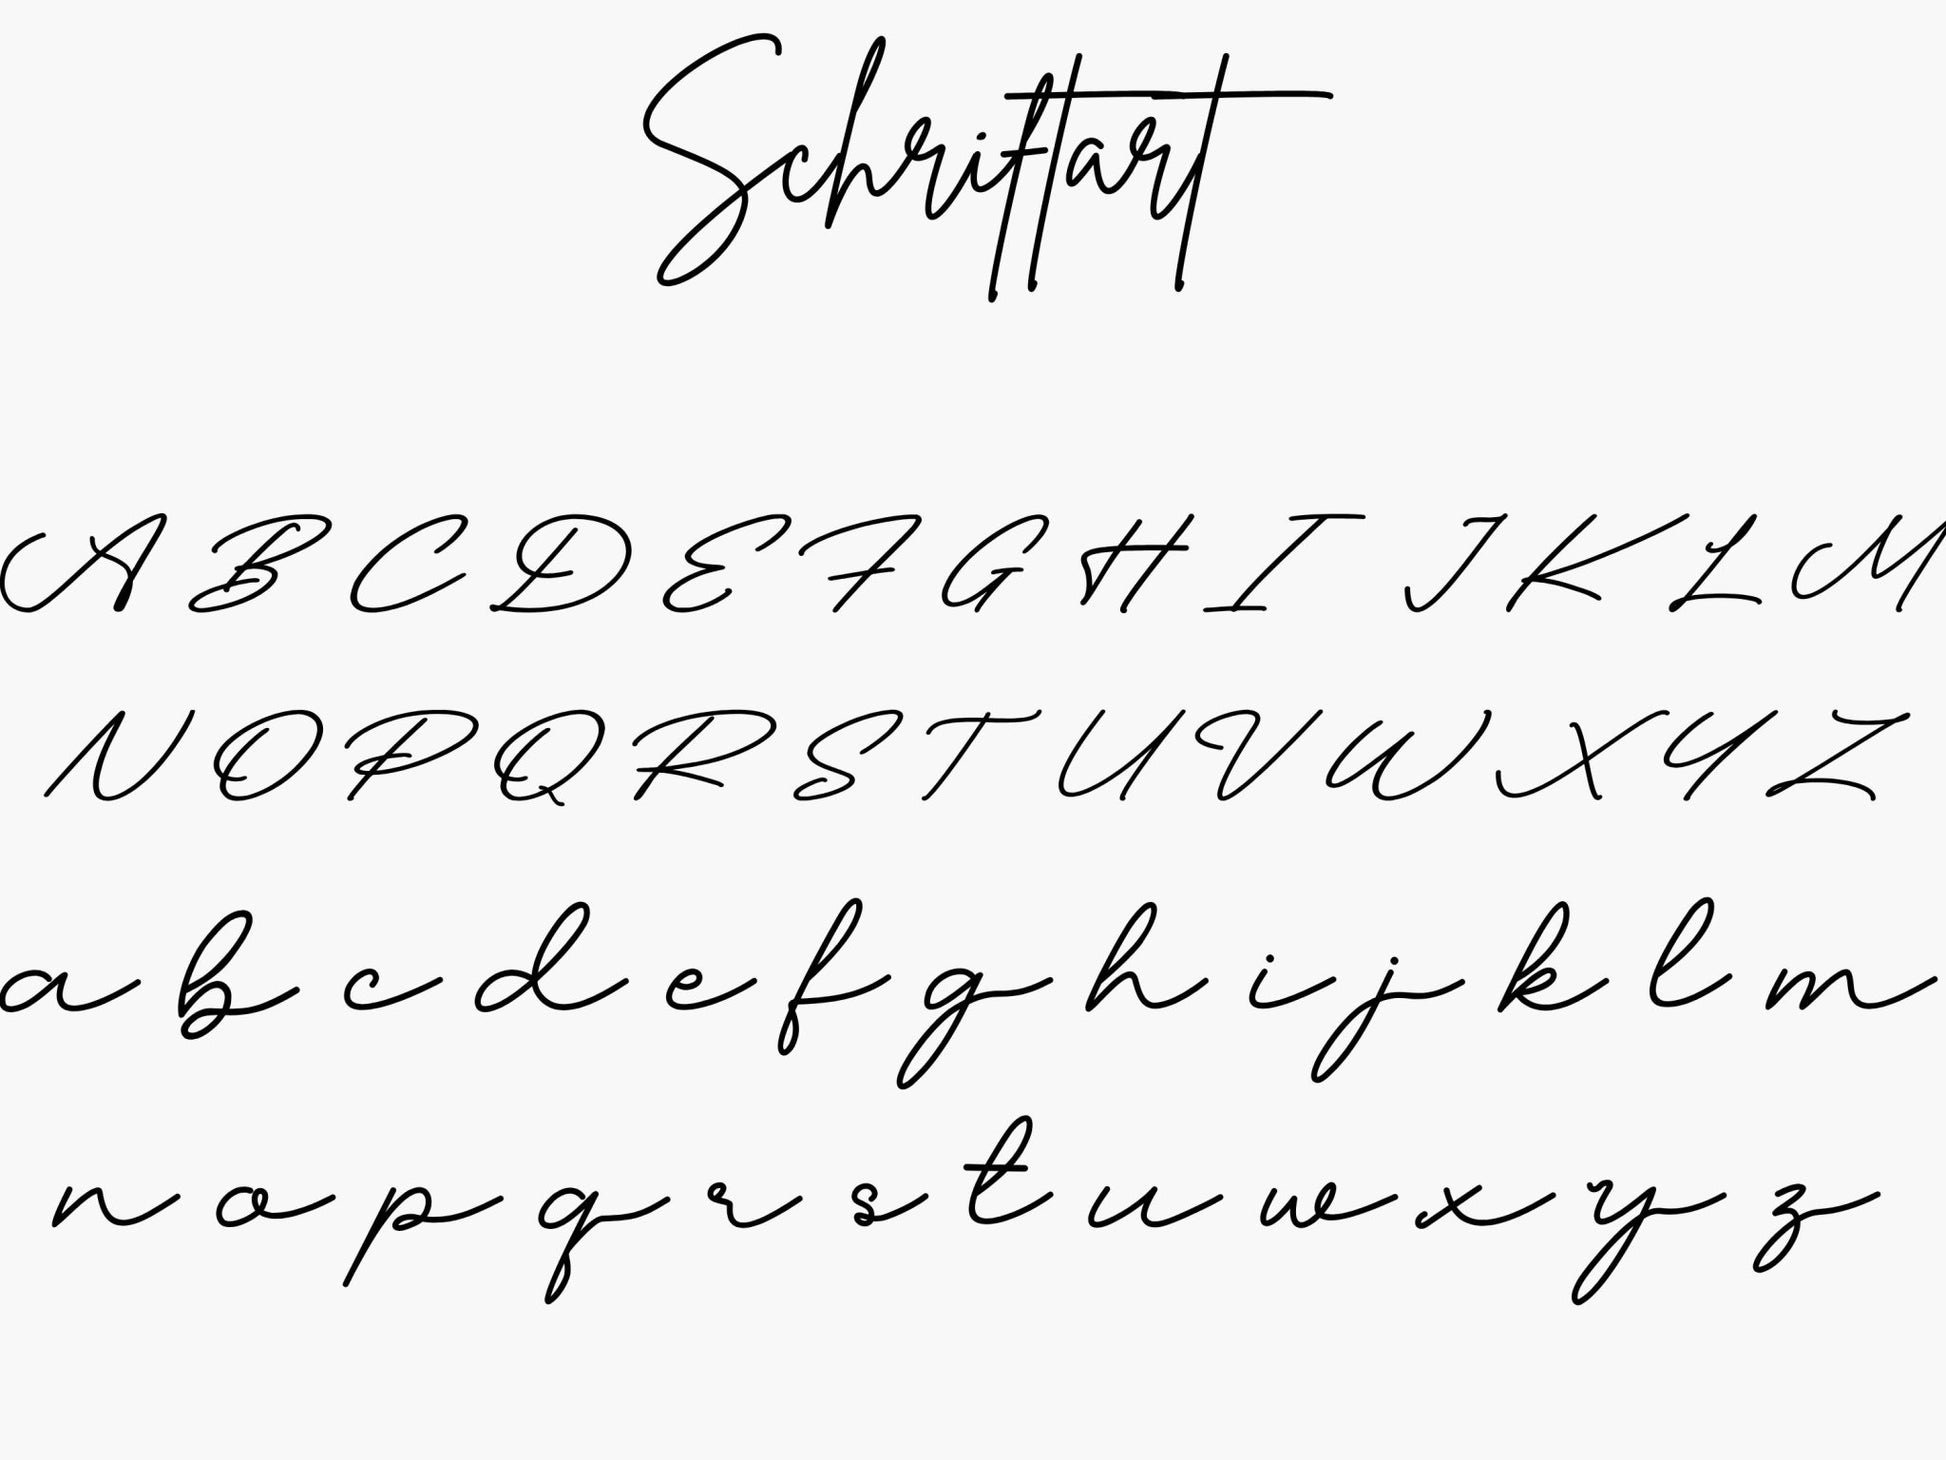 Schriftart
A B C D E F G H I J K L M
N O P Q R S T U V W X Y Z
a b c d e f g h i j k l m
n o p q r s t u w x y z